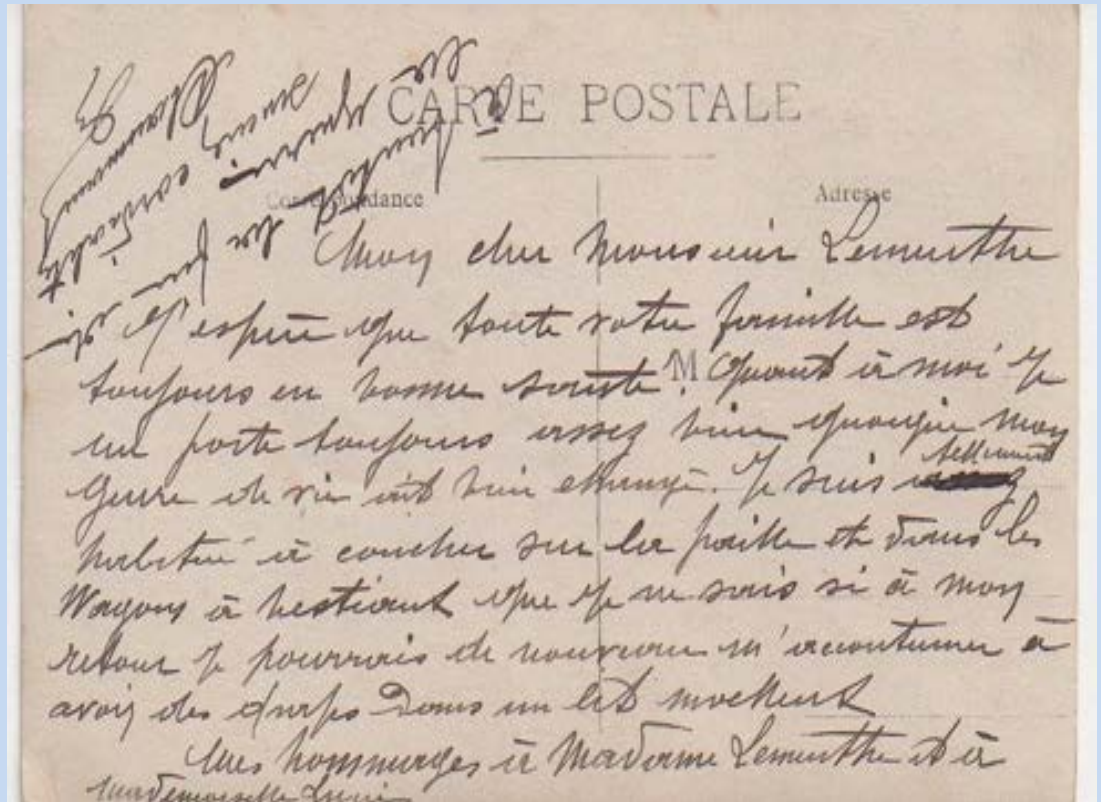 CARTE POSTALE
Correspondance
Adresse
Mon cher Monsieur Lemerthe
J'espère que toute votre famille est
toujours en bonne santé. Quant à moi je
M
me porte toujours assez bien quoique mon
genre de vie ait bien changé. Je suis tellement
habitué à coucher sur la paille et dans les
Wagons à bestiaux que je ne sais si à mon
retour je pourrais de nouveau m'accoutumer à
avoir des draps dans un lit moelleux
Mes hommages à Madame Lemerthe et à
Mademoiselle